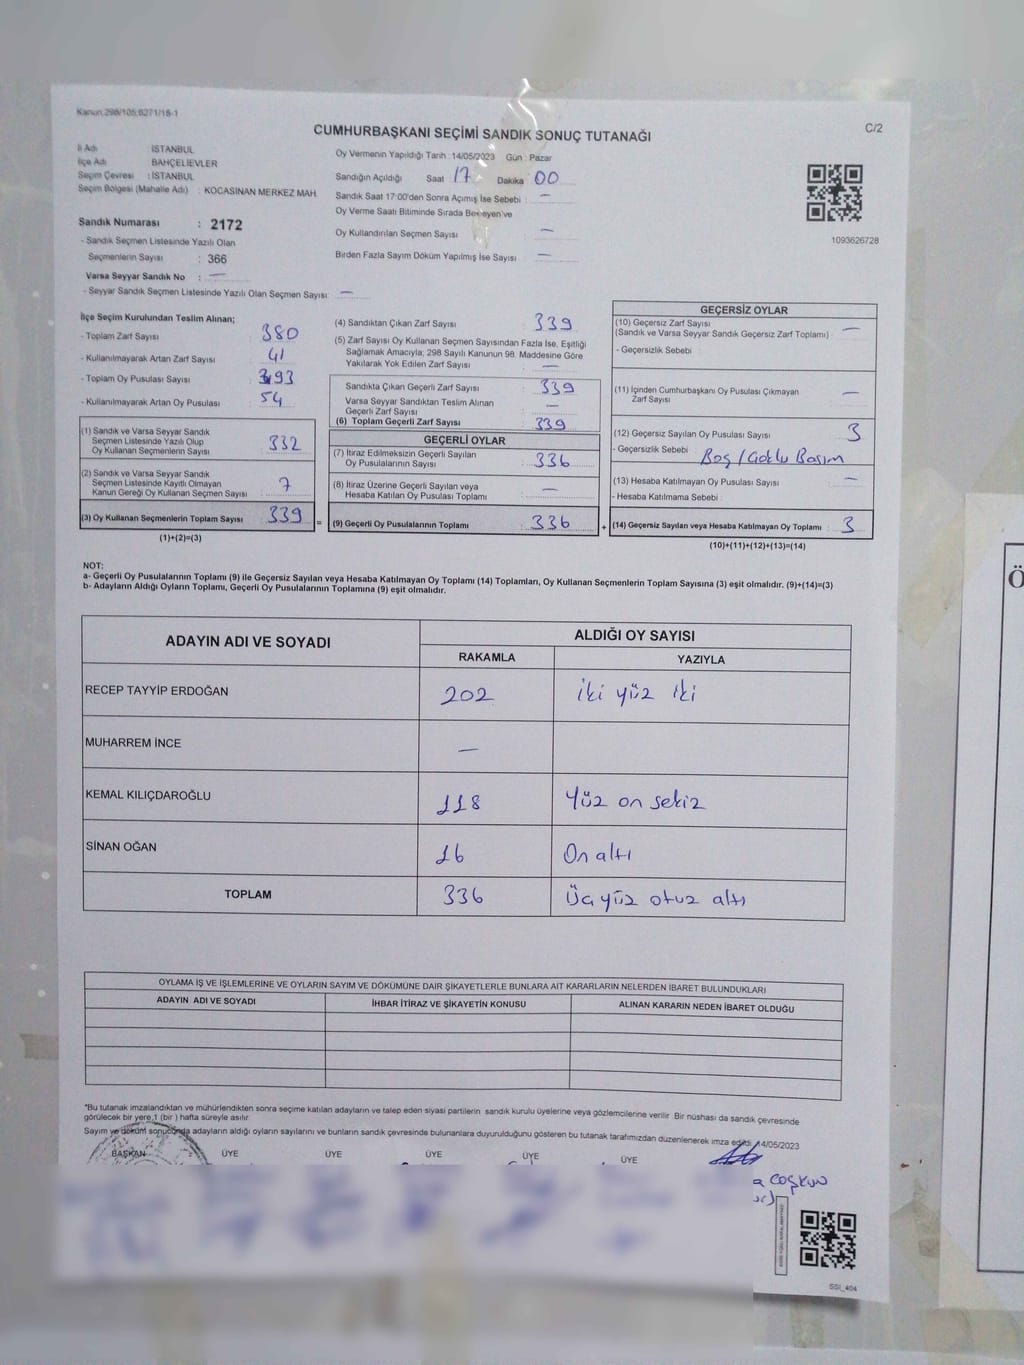 Kanun:298/105;6271/16-1
CUMHURBAŞKANI SEÇİMİ SANDIK SONUÇ TUTANAĞI
C/2
İl Adı : İSTANBUL
İlçe Adı : BAHÇELİEVLER
Seçim Çevresi : İSTANBUL
Seçim Bölgesi (Mahalle Adı) : KOCASİNAN MERKEZ MAH.
Sandık Numarası : 2172
- Sandık Seçmen Listesinde Yazılı Olan
Seçmenlerin Sayısı : 366
Varsa Seyyar Sandık No : —
- Seyyar Sandık Seçmen Listesinde Yazılı Olan Seçmen Sayısı: —
Oy Vermenin Yapıldığı Tarih : 14/05/2023 Gün : Pazar
Sandığın Açıldığı Saat 17 Dakika 00
Sandık Saat 17:00'den Sonra Açımış İse Sebebi : —
Oy Verme Saati Bitiminde Sırada Bekleyen ve
Oy Kullandırılan Seçmen Sayısı : —
Birden Fazla Sayım Döküm Yapılmış İse Sayısı : —
1093626728
İlçe Seçim Kurulundan Teslim Alınan;
- Toplam Zarf Sayısı : 380
- Kullanılmayarak Artan Zarf Sayısı : 41
- Toplam Oy Pusulası Sayısı : 393
- Kullanılmayarak Artan Oy Pusulası : 54
(1) Sandık ve Varsa Seyyar Sandık
Seçmen Listesinde Yazılı Olup
Oy Kullanan Seçmenlerin Sayısı : 332
(2) Sandık ve Varsa Seyyar Sandık
Seçmen Listesinde Kayıtlı Olmayan
Kanun Gereği Oy Kullanan Seçmen Sayısı : 7
(3) Oy Kullanan Seçmenlerin Toplam Sayısı : 339
(1)+(2)=(3)
=
(4) Sandıktan Çıkan Zarf Sayısı : 339
(5) Zarf Sayısı Oy Kullanan Seçmen Sayısından Fazla İse, Eşitliği
Sağlamak Amacıyla; 298 Sayılı Kanunun 98. Maddesine Göre
Yakılarak Yok Edilen Zarf Sayısı : —
Sandıkta Çıkan Geçerli Zarf Sayısı : 339
Varsa Seyyar Sandıktan Teslim Alınan
Geçerli Zarf Sayısı : —
(6) Toplam Geçerli Zarf Sayısı : 339
GEÇERLİ OYLAR
(7) İtiraz Edilmeksizin Geçerli Sayılan
Oy Pusulalarının Sayısı : 336
(8) İtiraz Üzerine Geçerli Sayılan veya
Hesaba Katılan Oy Pusulası Toplamı : —
(9) Geçerli Oy Pusulalarının Toplamı : 336
+
GEÇERSİZ OYLAR
(10) Geçersiz Zarf Sayısı
(Sandık ve Varsa Seyyar Sandık Geçersiz Zarf Toplamı) : —
- Geçersizlik Sebebi :
(11) İçinden Cumhurbaşkanı Oy Pusulası Çıkmayan
Zarf Sayısı : —
(12) Geçersiz Sayılan Oy Pusulası Sayısı : 3
- Geçersizlik Sebebi : Boş / Çoklu Basım
(13) Hesaba Katılmayan Oy Pusulası Sayısı : —
- Hesaba Katılmama Sebebi :
(14) Geçersiz Sayılan veya Hesaba Katılmayan Oy Toplamı : 3
(10)+(11)+(12)+(13)=(14)
NOT:
a- Geçerli Oy Pusulalarının Toplamı (9) ile Geçersiz Sayılan veya Hesaba Katılmayan Oy Toplamı (14) Toplamları, Oy Kullanan Seçmenlerin Toplam Sayısına (3) eşit olmalıdır. (9)+(14)=(3)
b- Adayların Aldığı Oyların Toplamı, Geçerli Oy Pusulalarının Toplamına (9) eşit olmalıdır.
ADAYIN ADI VE SOYADI
ALDIĞI OY SAYISI
RAKAMLA YAZIYLA
RECEP TAYYİP ERDOĞAN 202 iki yüz iki
MUHARREM İNCE —
KEMAL KILIÇDAROĞLU 118 Yüz on sekiz
SİNAN OĞAN 16 On altı
TOPLAM 336 Üç yüz otuz altı
OYLAMA İŞ VE İŞLEMLERİNE VE OYLARIN SAYIM VE DÖKÜMÜNE DAİR ŞİKAYETLERLE BUNLARA AİT KARARLARIN NELERDEN İBARET BULUNDUKLARI
ADAYIN ADI VE SOYADI İHBAR İTİRAZ VE ŞİKAYETİN KONUSU ALINAN KARARIN NEDEN İBARET OLDUĞU
*Bu tutanak imzalandıktan ve mühürlendikten sonra seçime katılan adayların ve talep eden siyasi partilerin sandık kurulu üyelerine veya gözlemcilerine verilir. Bir nüshası da sandık çevresinde
görülecek bir yere,1 (bir ) hafta süreyle asılır.
Sayım ve döküm sonucunda adayların aldığı oyların sayılarını ve bunların sandık çevresinde bulunanlara duyurulduğunu gösteren bu tutanak tarafımızdan düzenlenerek imza edildi. 14/05/2023
BAŞKAN ÜYE ÜYE ÜYE ÜYE ÜYE
a Coşkun
SSI_404
Ö